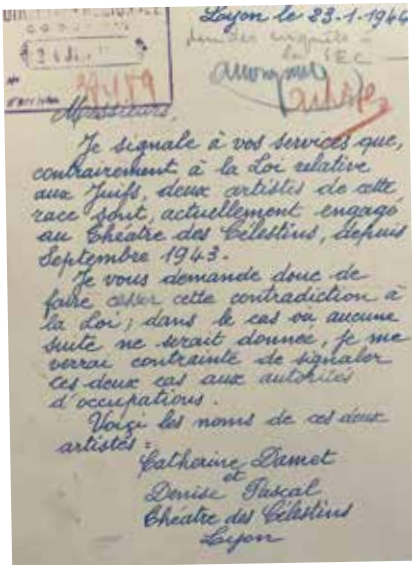 Lyon le 23-1-1944
anonyme
Messieurs,
Je signale à vos services que,
contrairement à la Loi relative
aux Juifs, deux artistes de cette
race sont, actuellement engagé
au Théatre des Célestins, depuis
Septembre 1943.
Je vous demande donc de
faire cesser cette contradiction à
la Loi; dans le cas ou aucune
suite ne serait donnée, je me
verrai contrainte de signaler
ces deux cas aux autorités
d'occupations.
Voiçi les noms de ces deux
artistes :
Catherine Damet
et
Denise Pascal
Théatre des Célestins
Lyon